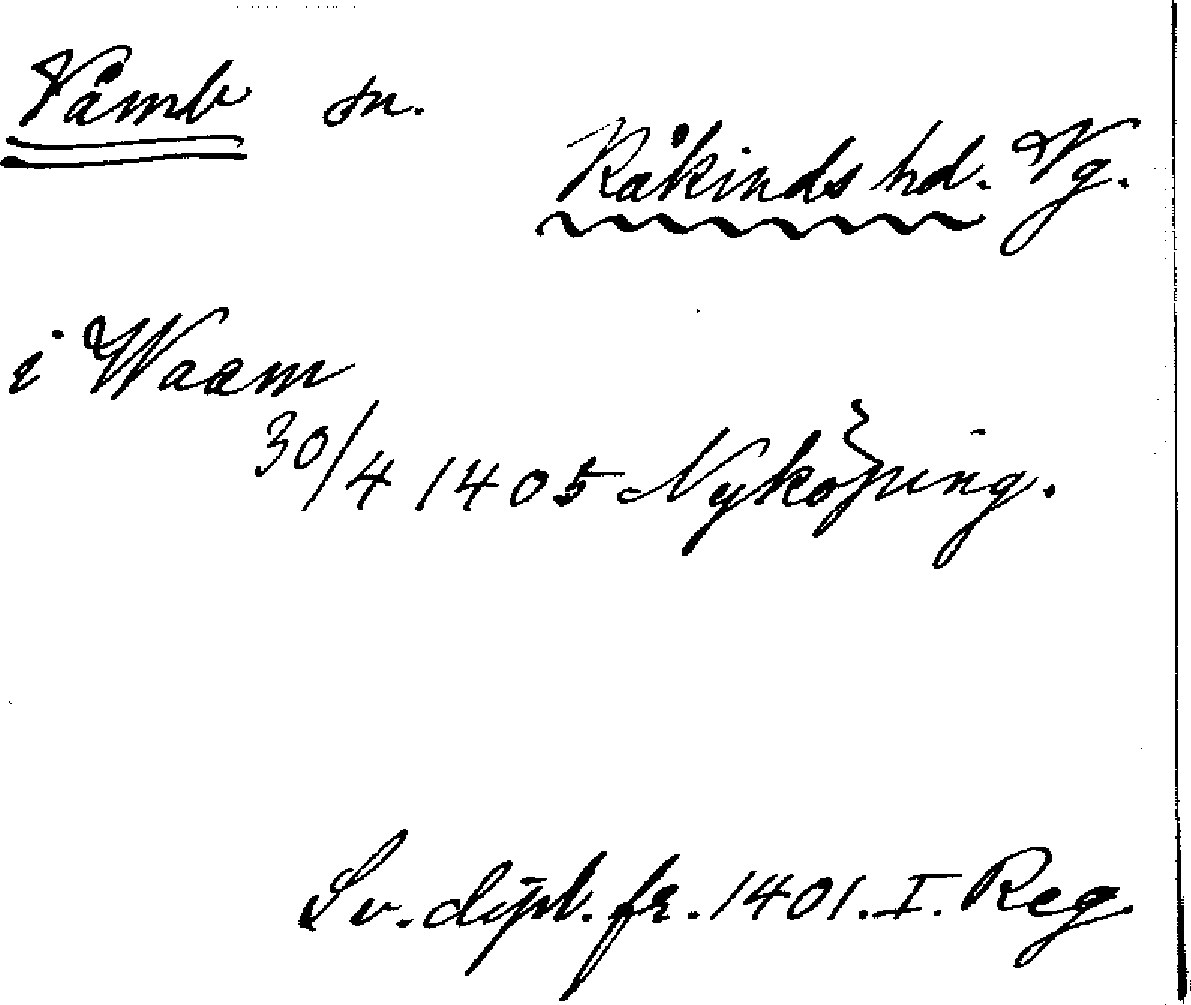 Våmb sn.
Kåkinds hd. Vg.
i Waam
30/4 1405 Nyköping.
Sv. dipl. fr. 1401. I. Reg.